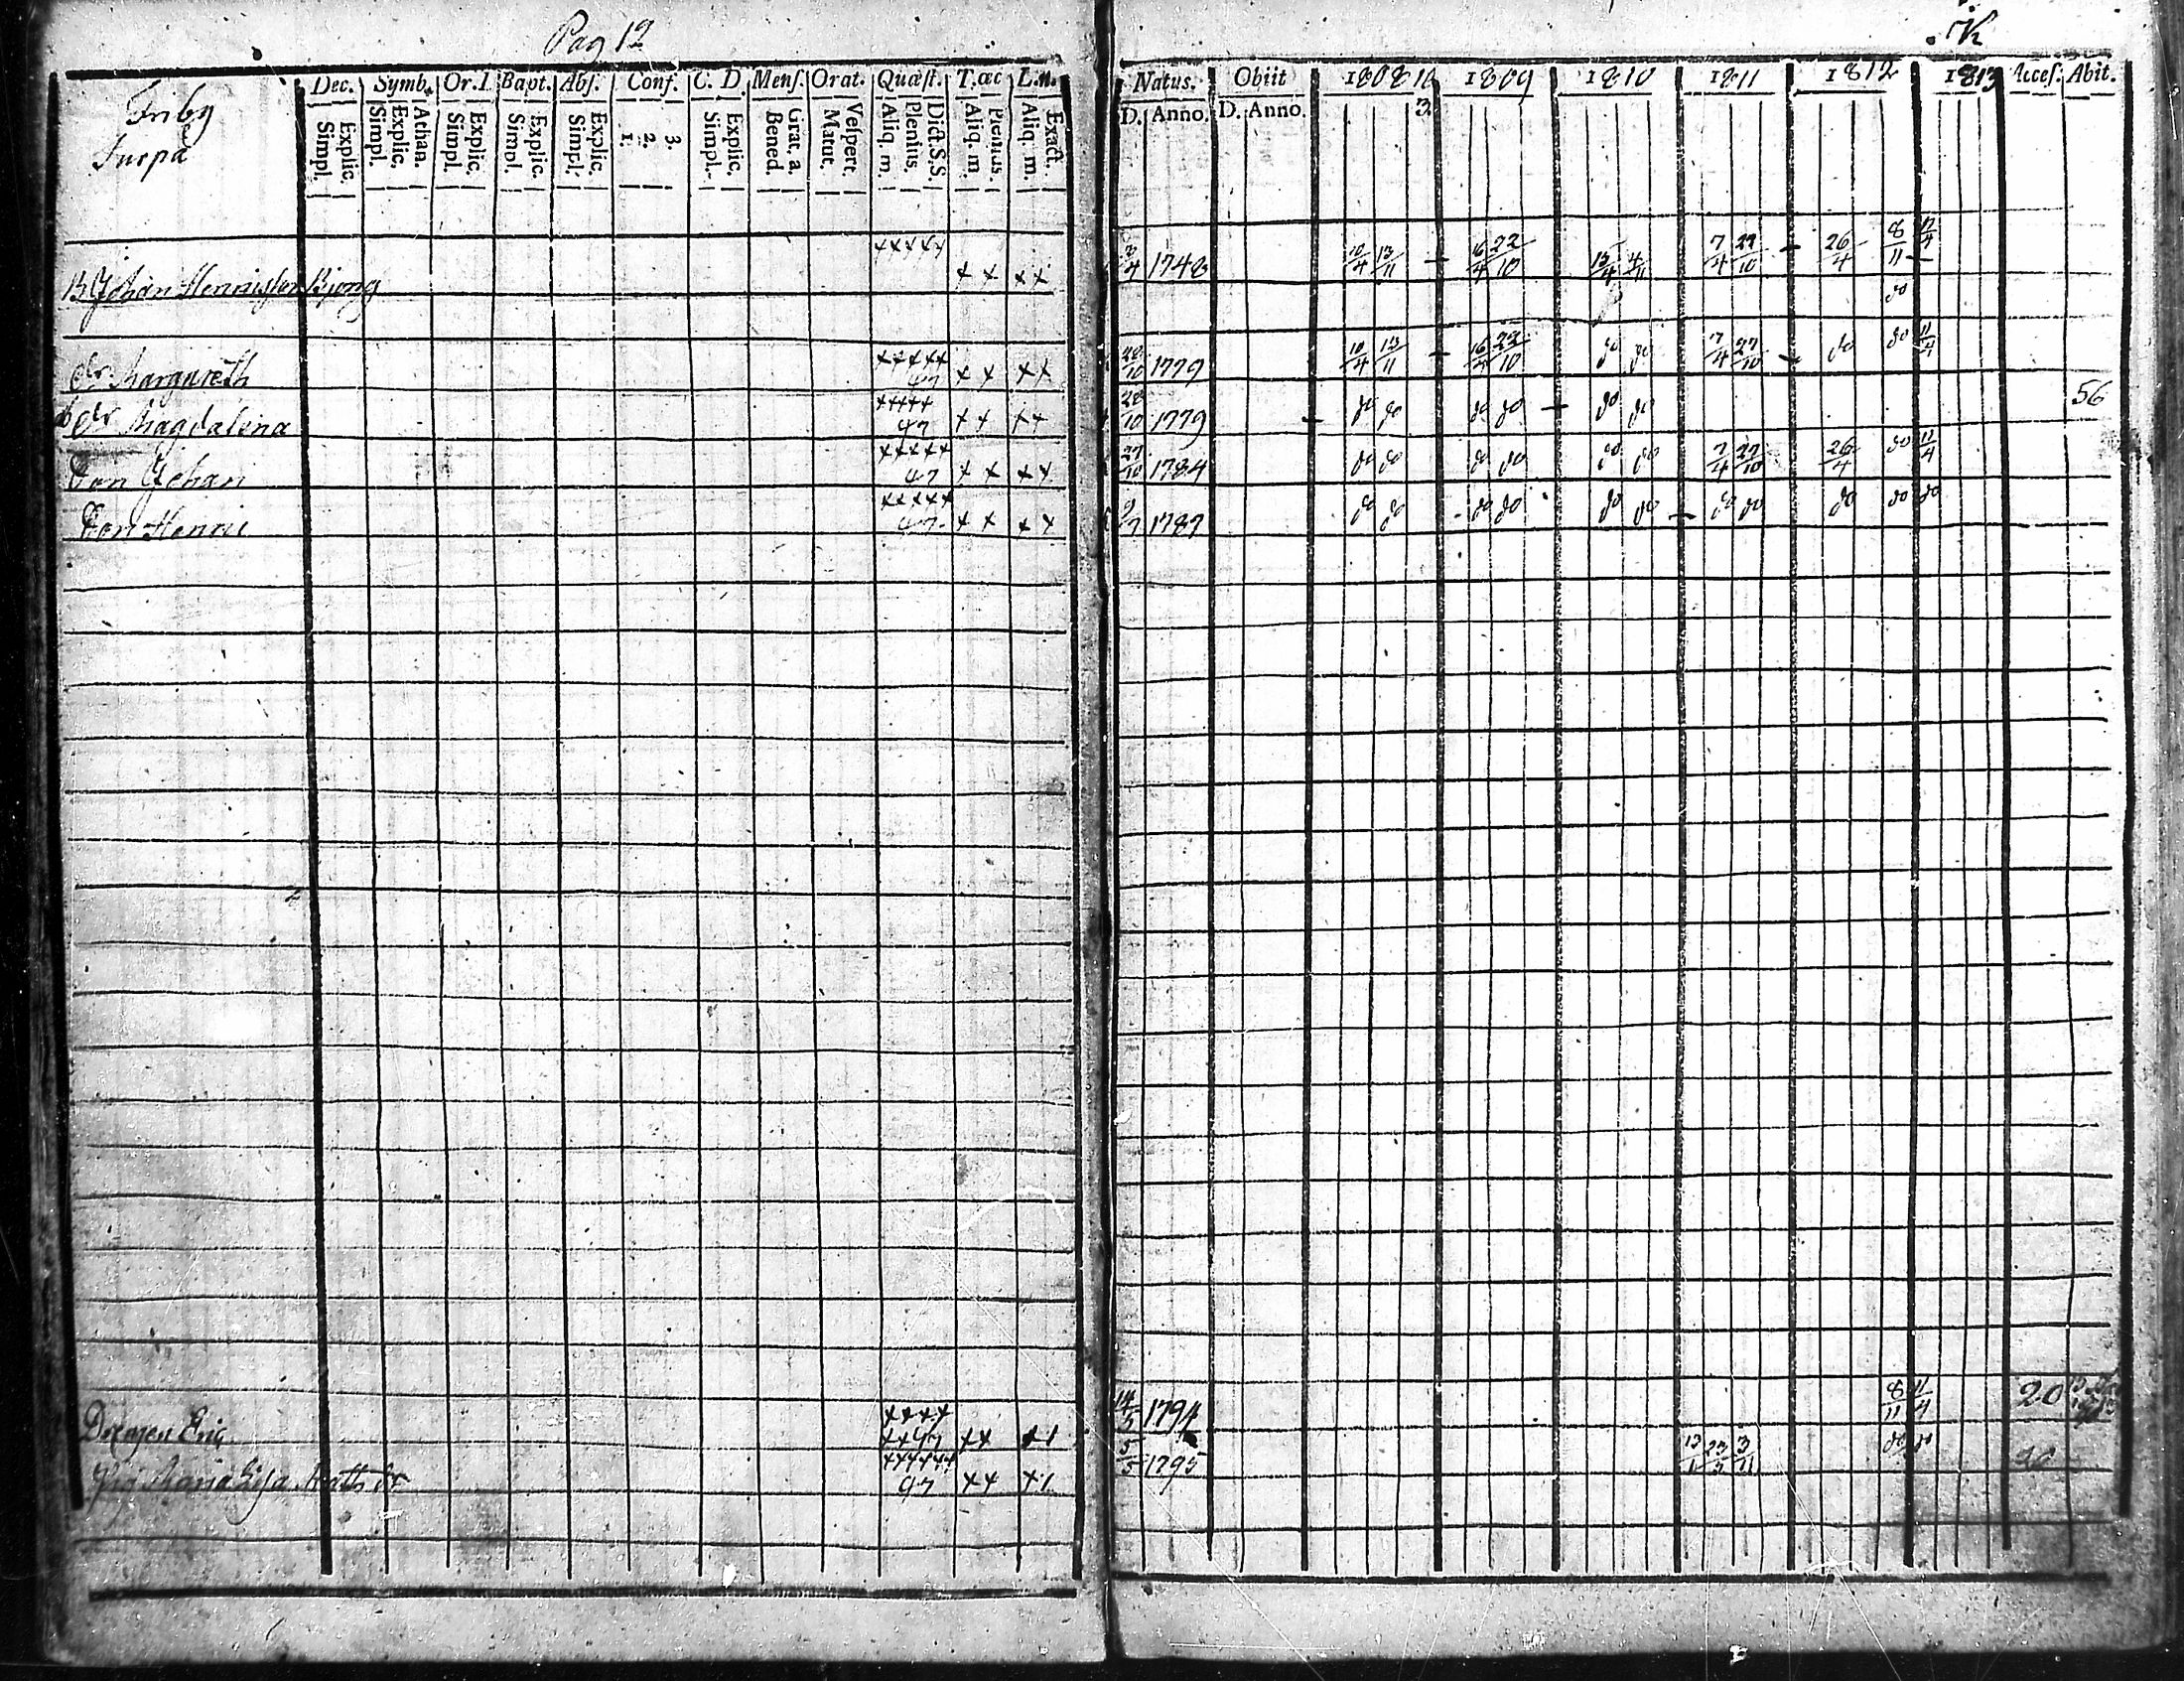 Pag 12
K
Friby
Surpa
Dec. Symb. Or. I. Bapt. Abs. Conf. C. D. Mens. Orat. Quæst. T. œc L. in.
Simpl. Explic. Simpl. Explic. Athan. Simpl. Explic. Simpl. Explic. Simpl. Explic. 1. 2. 3. Simpl. Explic. Bened. Grat. a. Matut. Vespert. Aliq. m. Plenius. Dict. S. S. Aliq. m. Plenius. Aliq. m. Exact.
Natus. Obiit 1808 1809 1810 1811 1812 1813 Acces. Abit.
D. Anno. D. Anno. 3
B Johan Henriksson Bjong ××××× ×× ×× 1748 10/4 13/11 16/4 22/10 15/4 4/11 7/4 27/10 26/4 8/11
do
dr Margareth ××××× 47 ×× ×× 28/10 1779 10/4 13/11 16/4 22/10 do do 7/4 27/10 do do 11/4
dr Magdalena ××××× 47 ×× ×× 28/10 1779 do do do do do do 56
Son Johan ××××× 47 ×× ×× 27/10 1784 do do do do do do 7/4 27/10 26/4 do 11/4
Son Henric ××××× 47 ×× ×× 1787 do do do do do do do do do do do
Drägen Eric ×××× ××47 ×× 14/5 1794 8/11 11/4 20
Pig Maria Lisa Matts dr 47 ×× 5/5 1795 13/1 23/5 3/11 do do